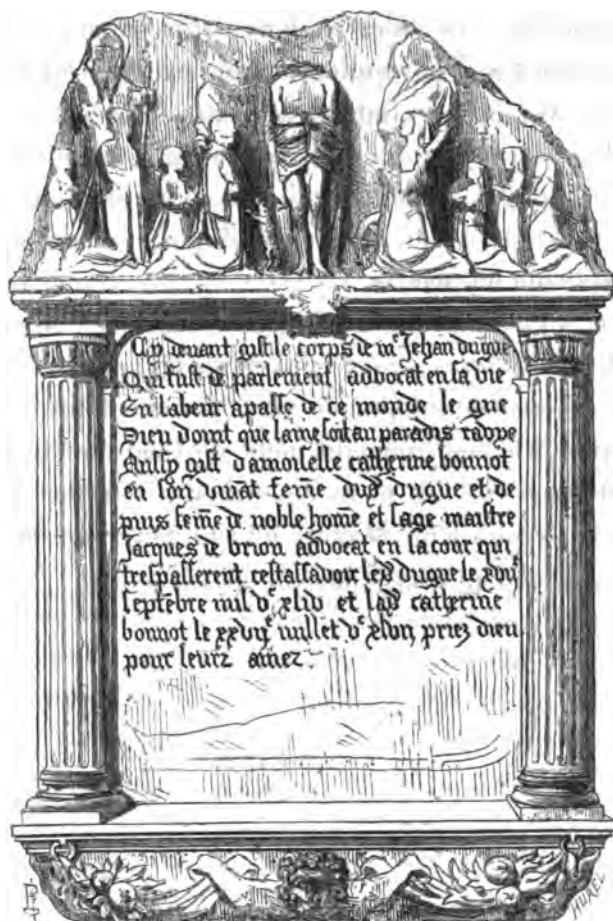 Cy devant gist le corps de mᵉ Jehan dugue
Qui fust de parlement advocat en sa vie
En labeur a passe de ce monde le gue
Dieu doint que lame soit au paradis ravye
Aussy gist damoiselle catherine bonnot
en son vivāt fēme dud dugue et de
puis fēme de noble hōme et sage maistre
Jacques de brion advocat en la cour qui
trespasserent cestassavoir led dugue le
septēbre mil vᶜ xliv et lad catherine
bonnot le xxvijᵉ juillet vᶜ priez dieu
pour leurz amez